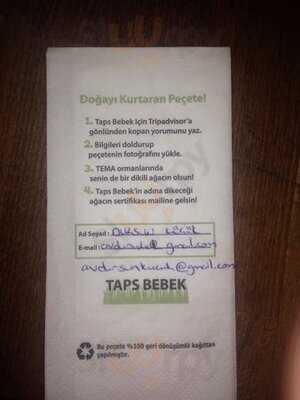 Doğayı Kurtaran Peçete!
1. Taps Bebek için Tripadvisor'a
gönlünden kopan yorumunu yaz.
2. Bilgileri doldurup
peçetenin fotoğrafını yükle.
3. TEMA ormanlarında
senin de bir dikili ağacın olsun!
4. Taps Bebek'in adına dikeceği
ağacın sertifikası mailine gelsin!
Ad Soyad :
E-mail :
@gmail.com
TAPS BEBEK
Bu peçete %100 geri dönüşümlü kağıttan
yapılmıştır.